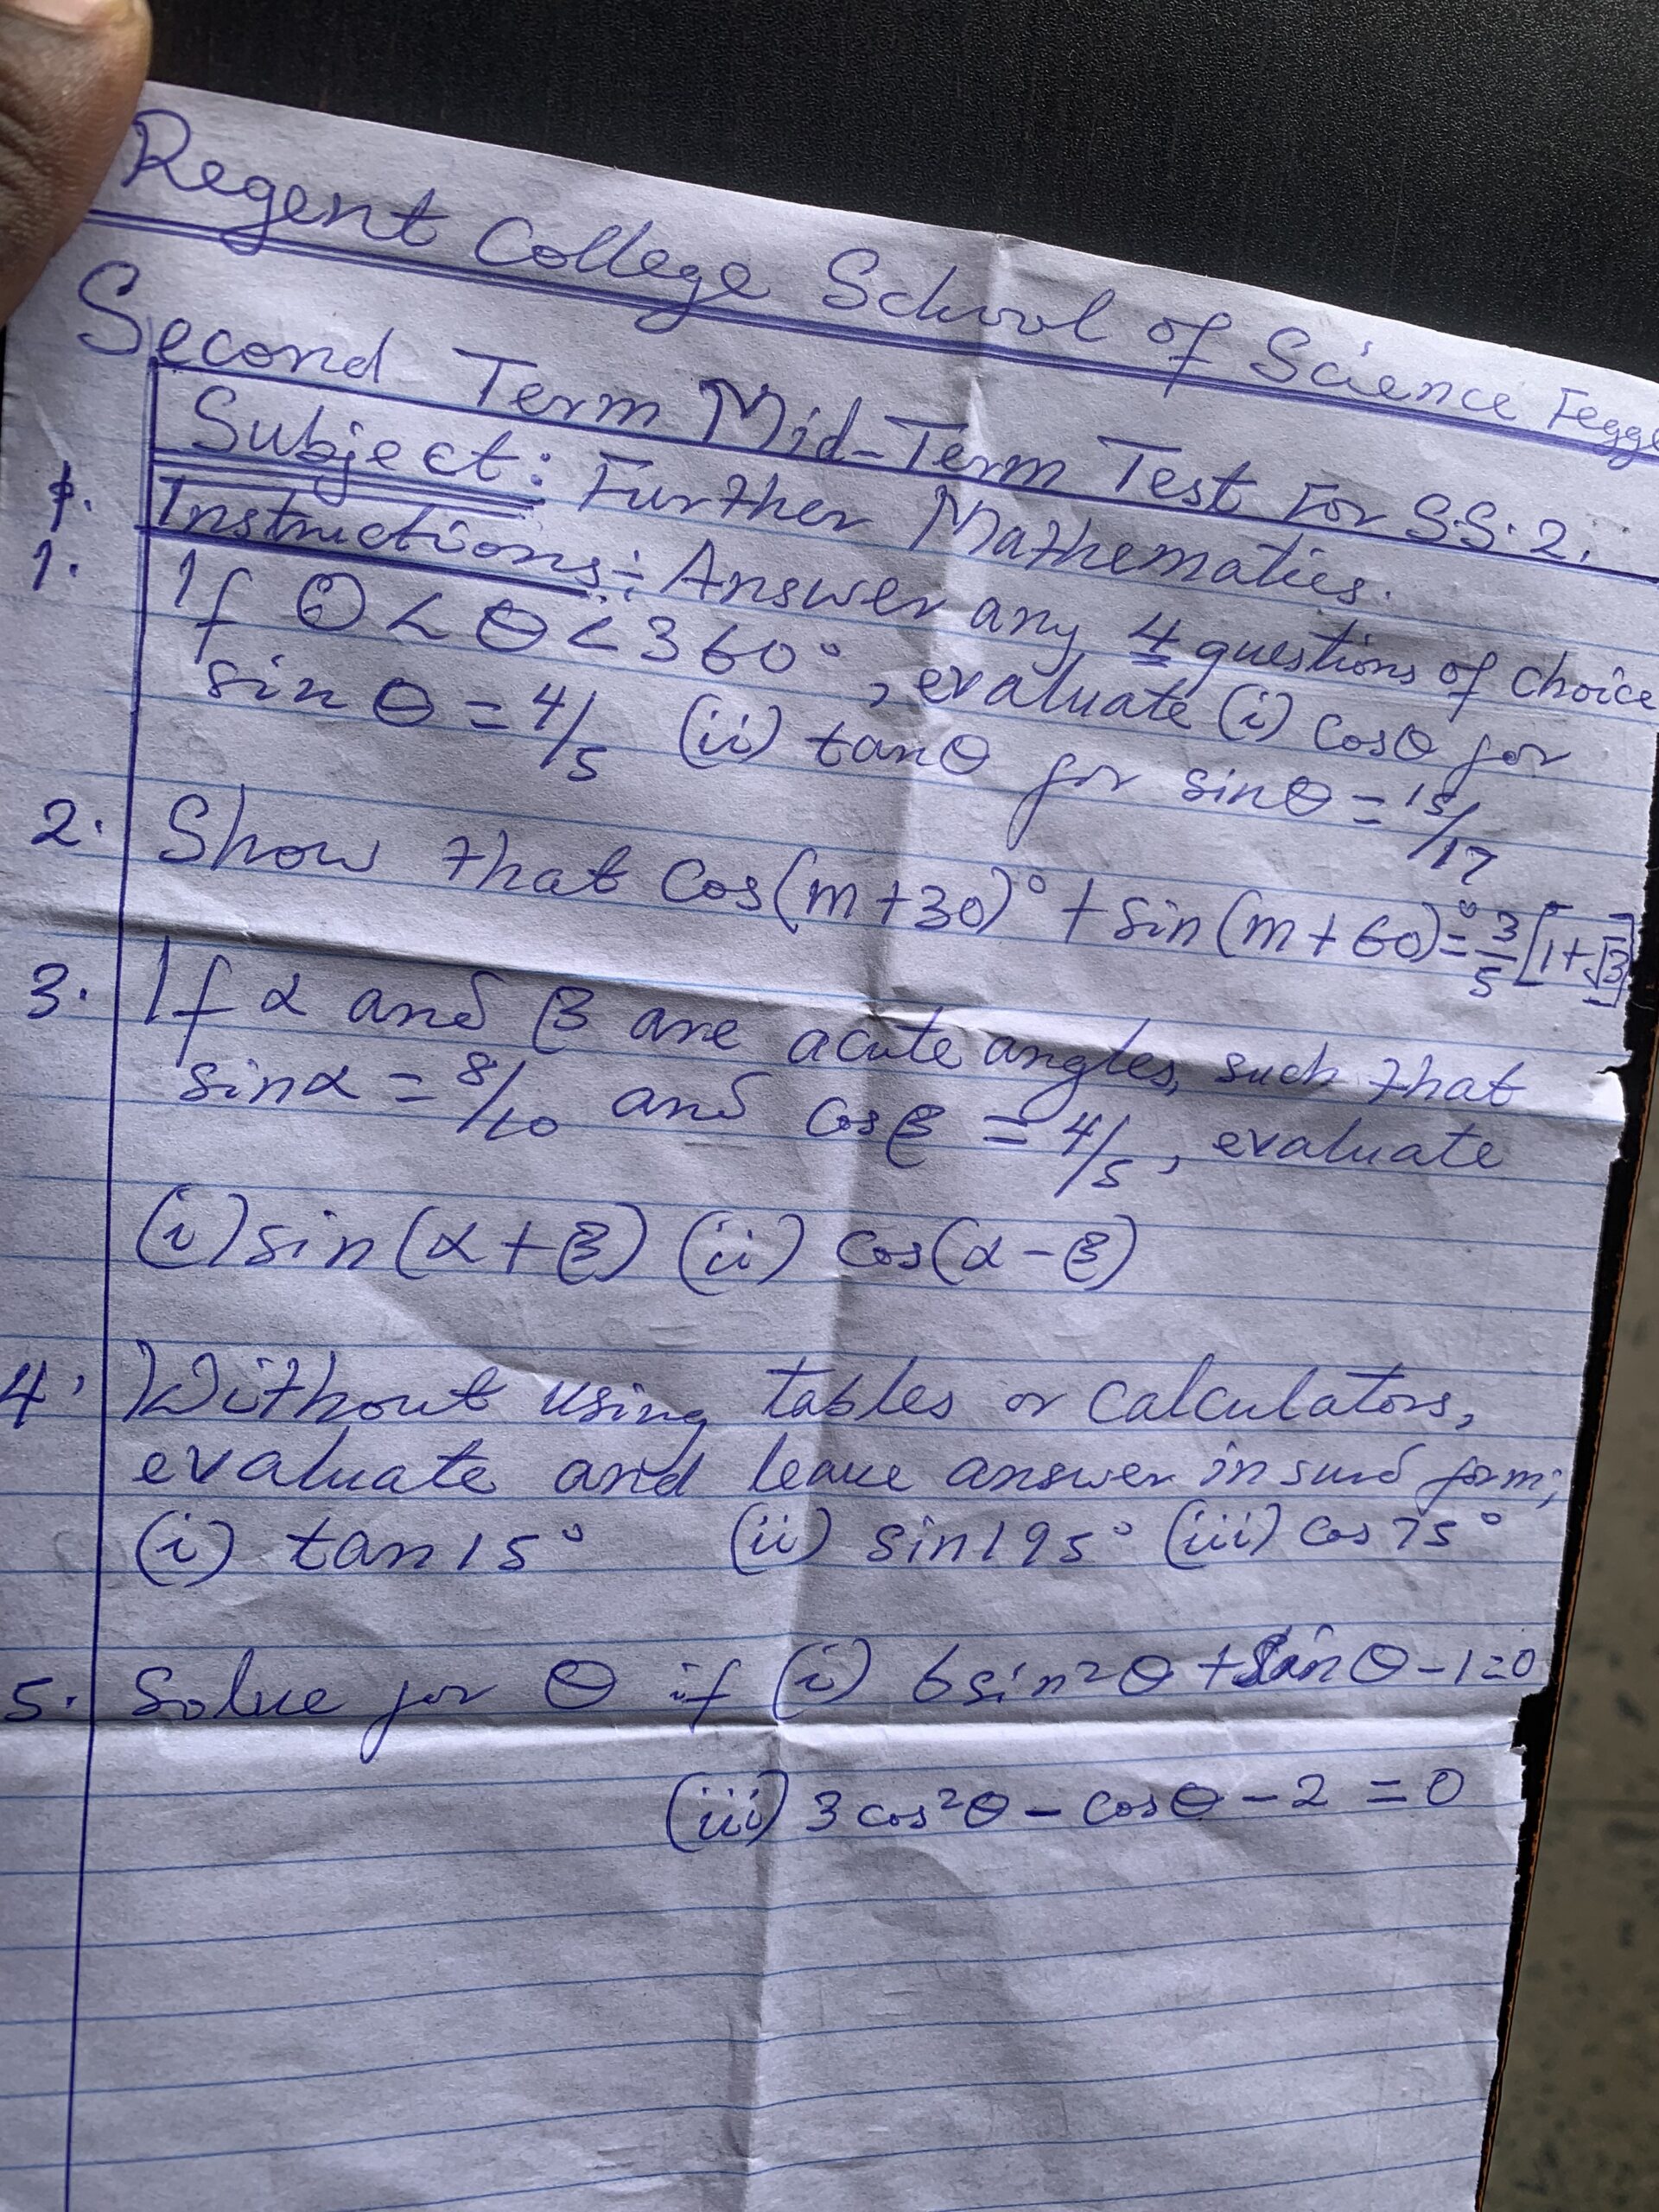 Regent College School of Science Fegge
Second Term Mid-Term Test For S.S.2.
Subject: Further Mathematics.
Instructions:- Answer any 4 questions of choice
1. If 0 < θ < 360°, evaluate (i) cosθ for
sinθ = 4/5 (ii) tanθ for sinθ = 15/17
2. Show that cos(m+30)° + sin(m+60)° = 3/5[1+√3]
3. If α and β are acute angles, such that
sinα = 8/10 and cosβ = 4/5, evaluate
(i) sin(α+β) (ii) cos(α-β)
4. Without using tables or calculators,
evaluate and leave answer in surd form;
(i) tan15° (ii) sin195° (iii) cos75°
5. Solve for θ if (i) 6sin²θ + sinθ - 1=0
(iii) 3cos²θ - cosθ - 2 = 0